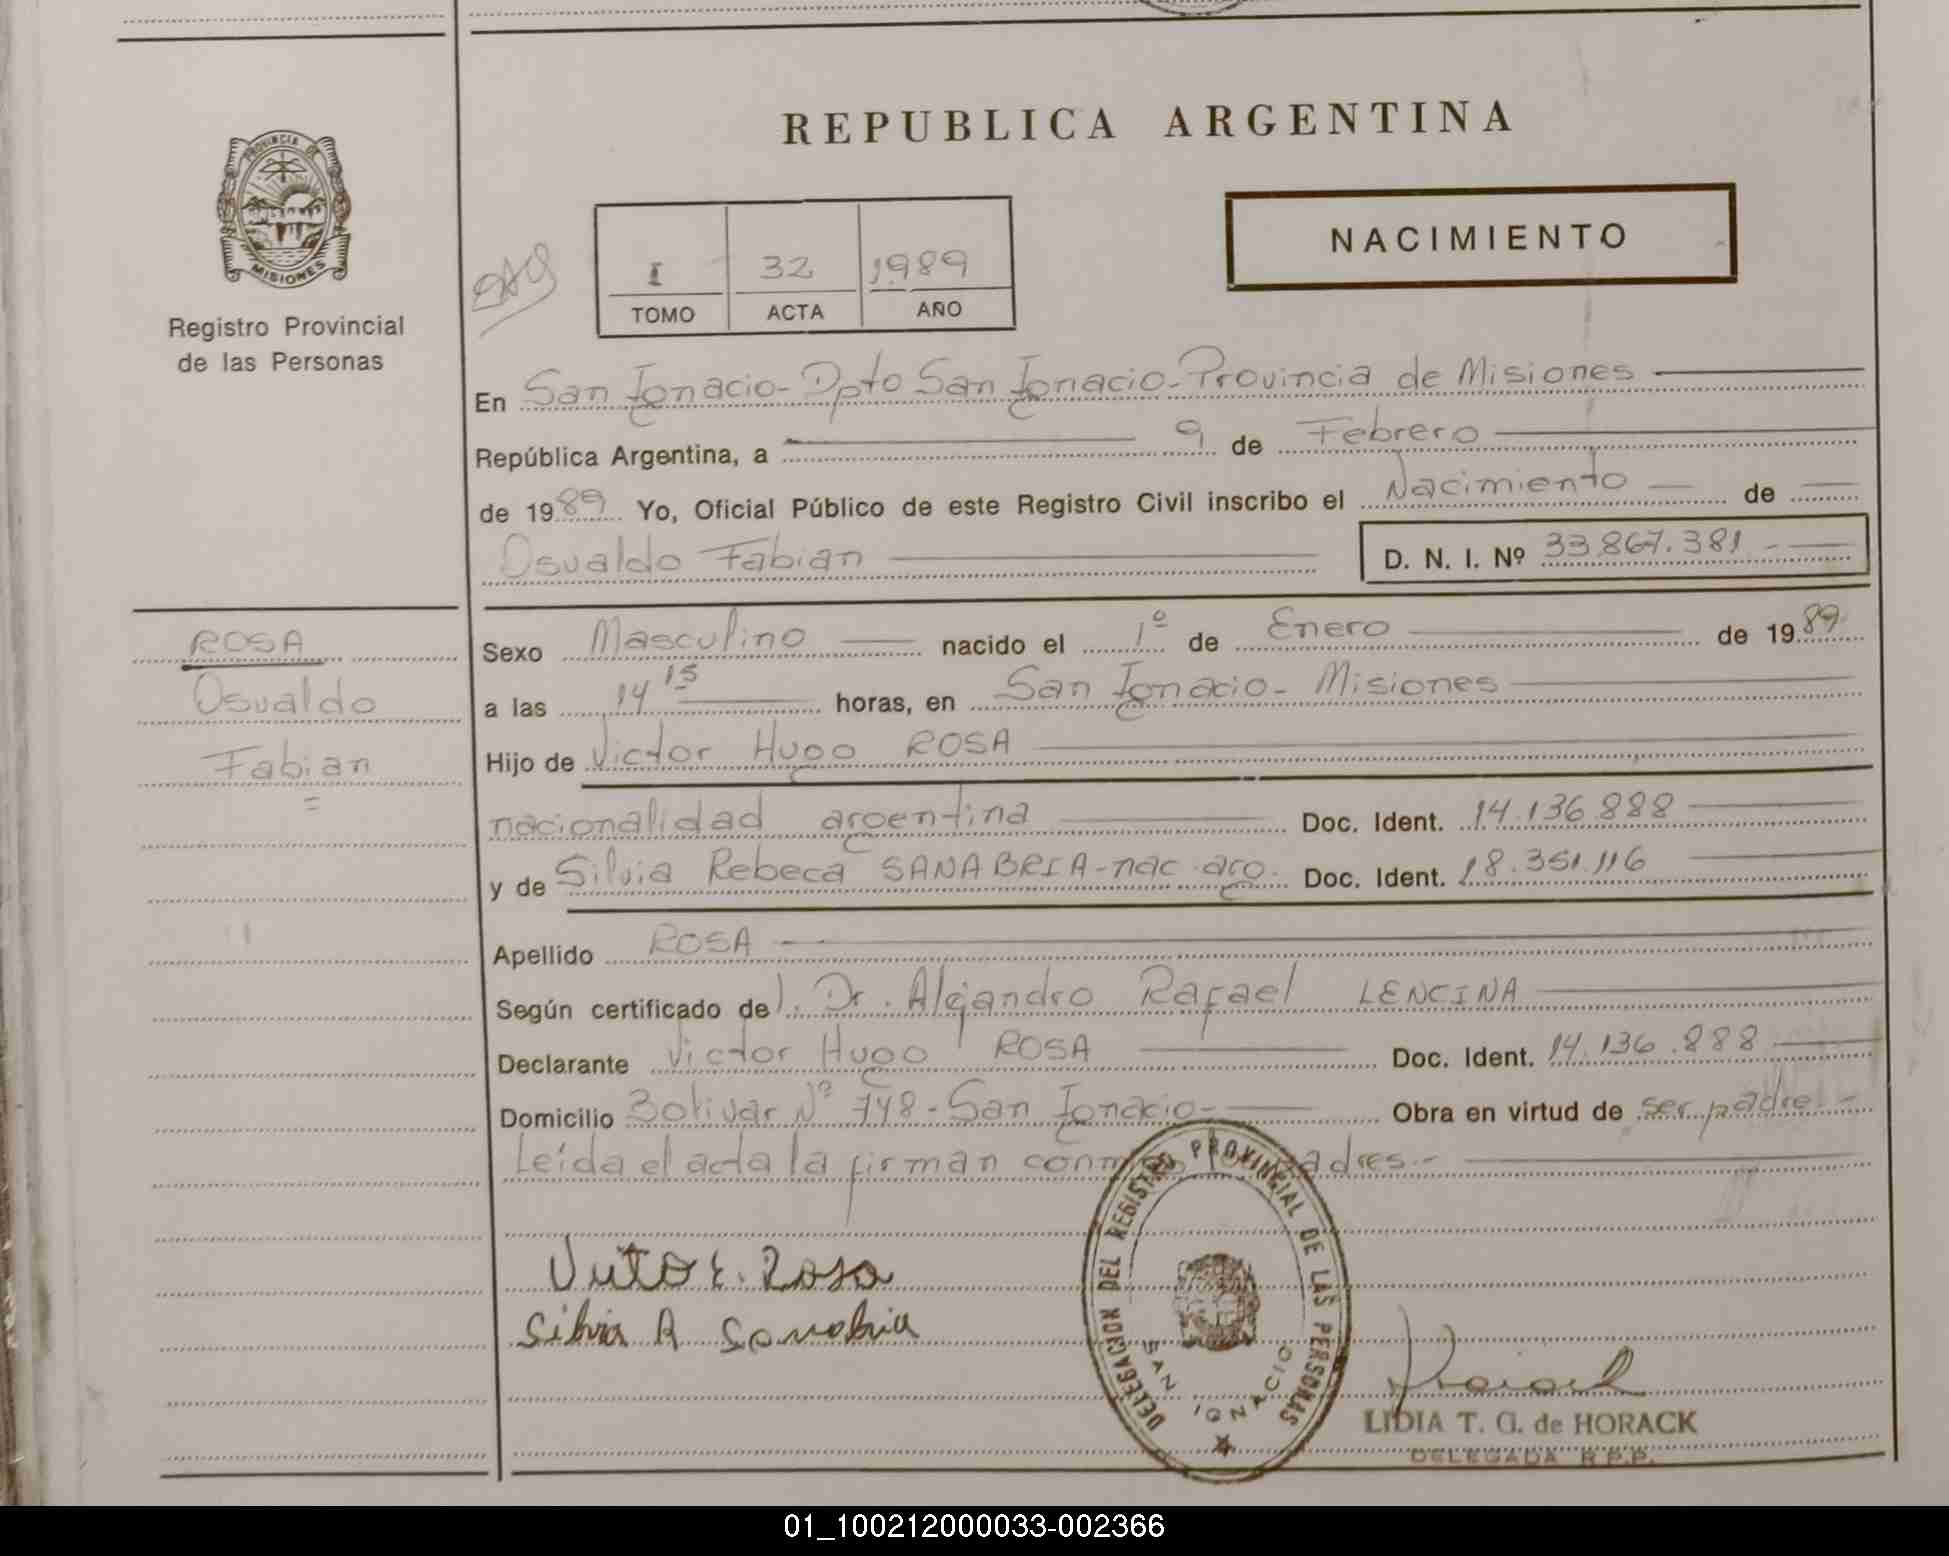 REPUBLICA ARGENTINA
PROVINCIA DE
MISIONES
Registro Provincial
de las Personas
NACIMIENTO
I 32 1989
TOMO ACTA AÑO
En San Ignacio - Dpto San Ignacio - Provincia de Misiones
República Argentina, a 9 de Febrero
de 1989 Yo, Oficial Público de este Registro Civil inscribo el Nacimiento de
Osvaldo Fabian D. N. I. Nº 33.867.381 -
ROSA
Osvaldo
Fabian
=
Sexo Masculino nacido el 1º de Enero de 1989
a las 14 15 horas, en San Ignacio - Misiones
Hijo de Victor Hugo ROSA
nacionalidad argentina Doc. Ident. 14.136.888
y de Silvia Rebeca SANABRIA - nac. arg. Doc. Ident. 18.351.116
Apellido ROSA
Según certificado del Dr. Alejandro Rafael LENCINA
Declarante Victor Hugo ROSA Doc. Ident. 14.136.888
Domicilio Bolivar Nº 748 - San Ignacio - Obra en virtud de ser padre -
Leída el acta la firman adres. -
DELEGACION DEL REGISTRO PROVINCIAL DE LAS PERSONAS
SAN IGNACIO
Silvia R Sanabria
LIDIA T. G. de HORACK
DELEGADA R.P.P.
01_100212000033-002366